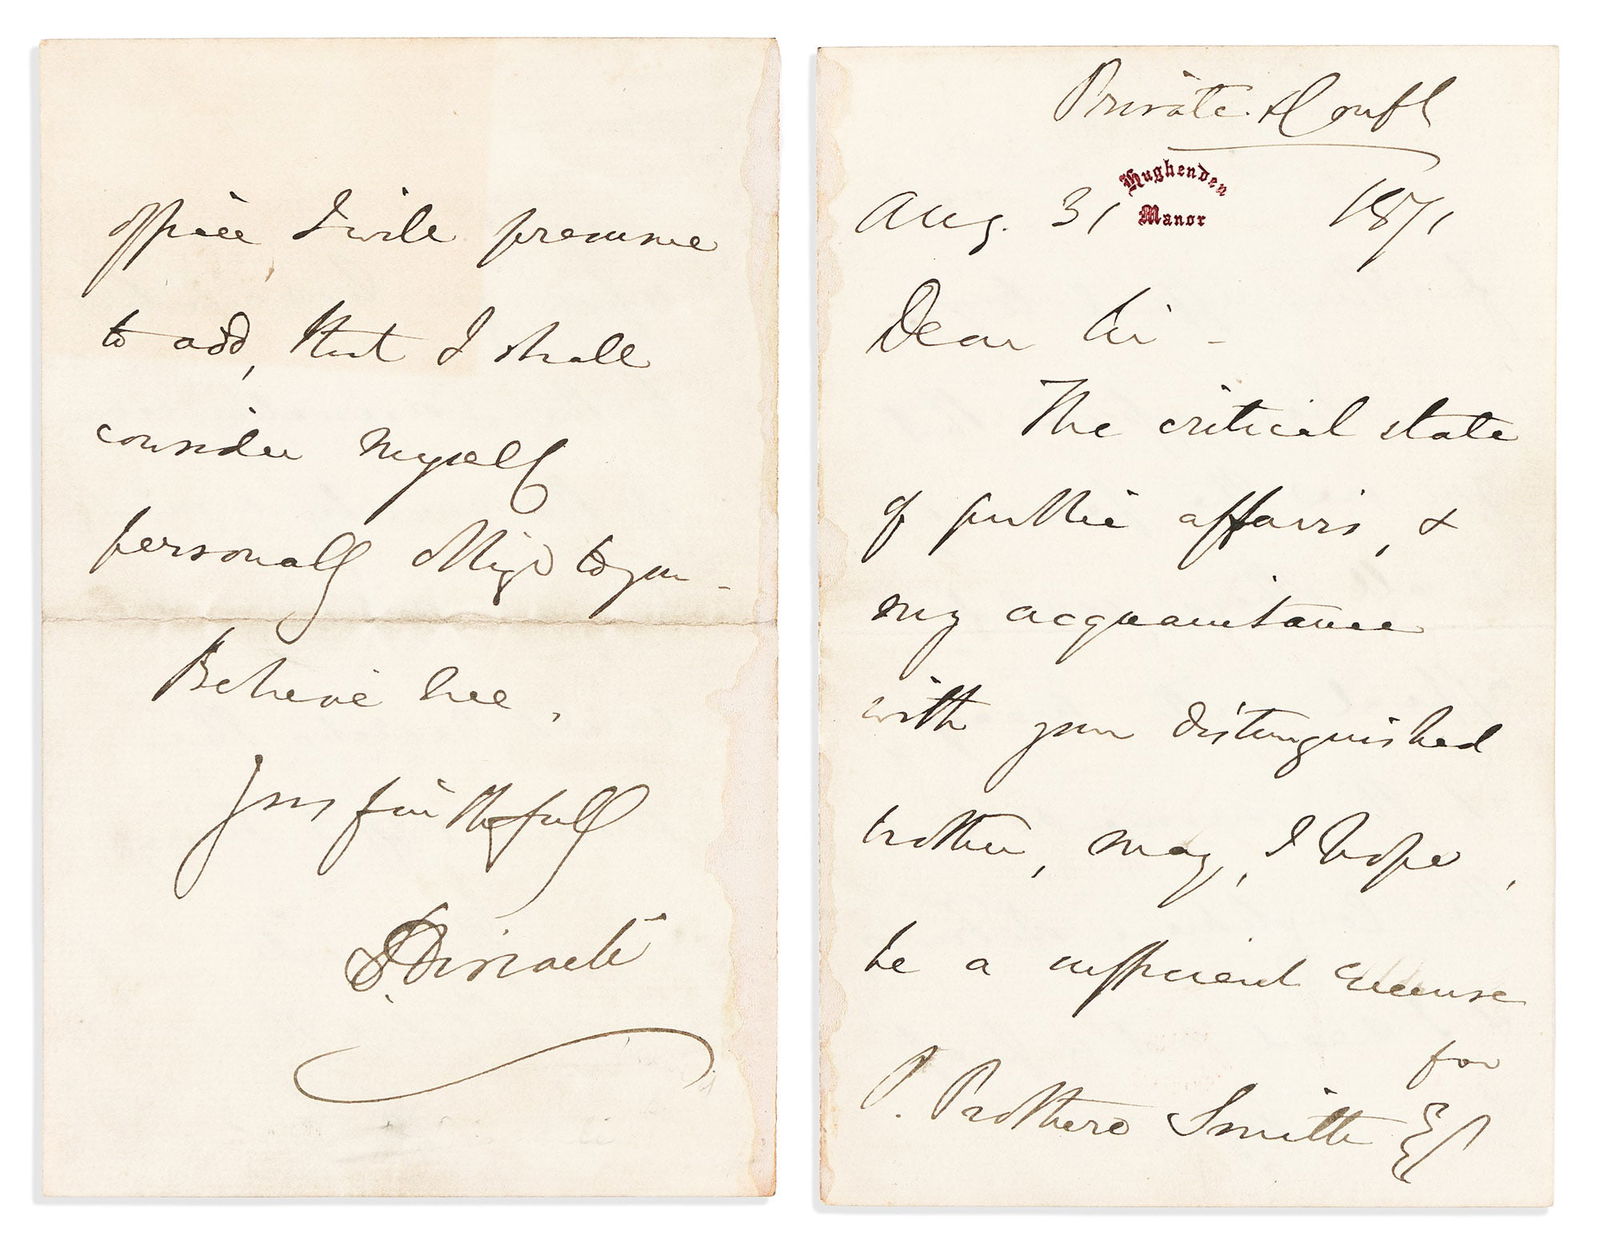 Private & Confl
Hughenden
Manor
Aug. 31 1871
Dear Sir -
The critical state
of public affairs, &
my acquaintance
with your distinguished
brother, may, I hope,
be a sufficient excuse
for
P. Prothero Smith Esq
office I will presume
to add, that I shall
consider myself
personally oblig'd to you -
Believe me,
Yours faithfully
B. Disraeli